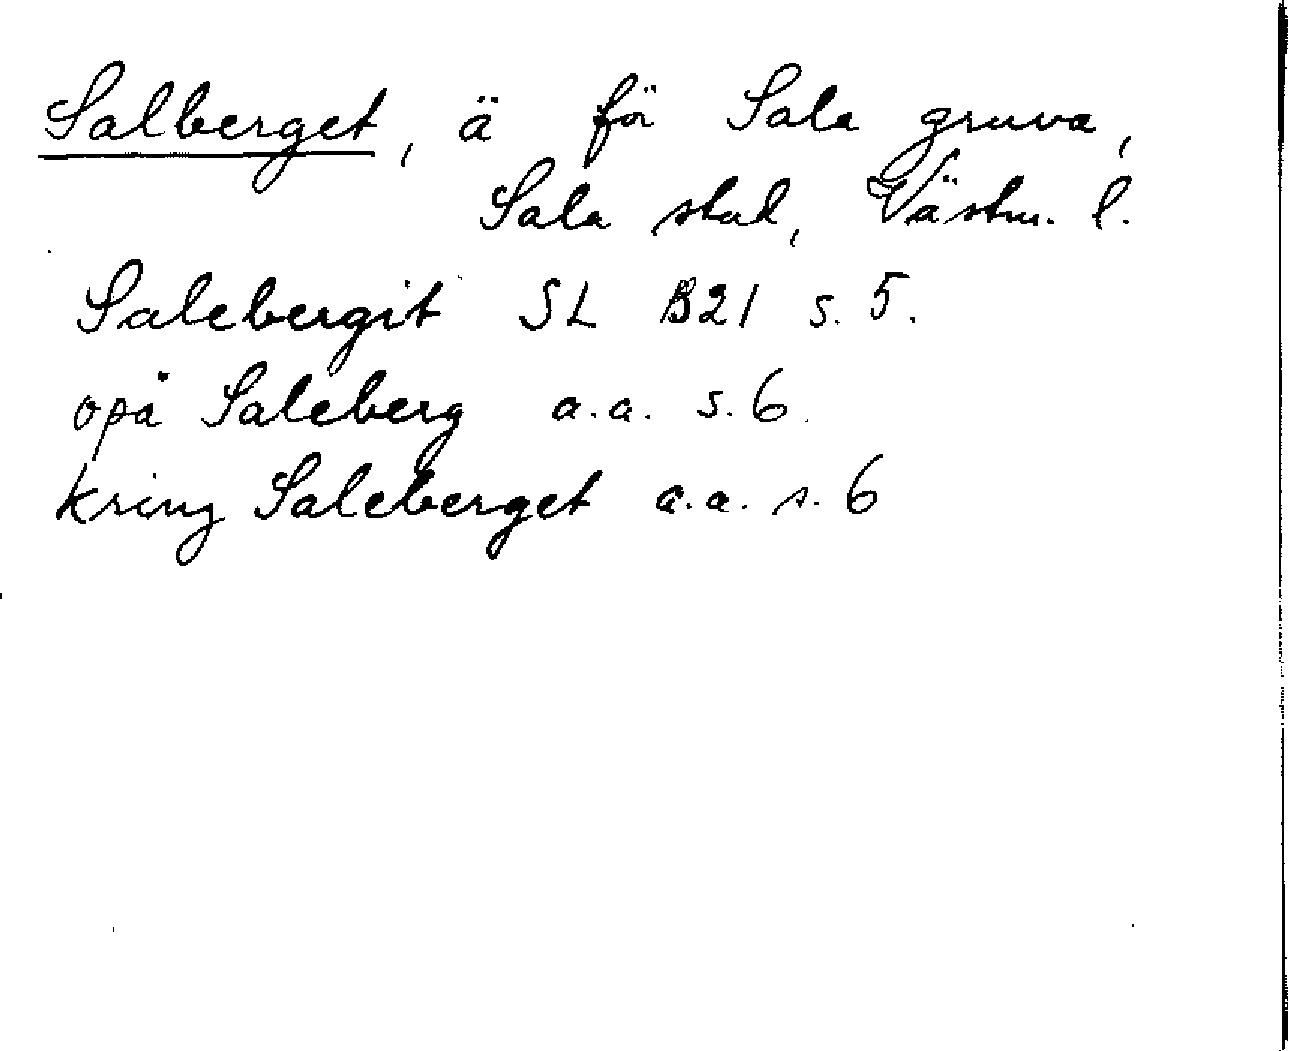 Salberget, ä för Sala gruva,
Sala stad, Västm. l.
Salebergit SL B21 s. 5.
opå Saleberg a.a. s. 6.
kring Saleberget a.a. s. 6